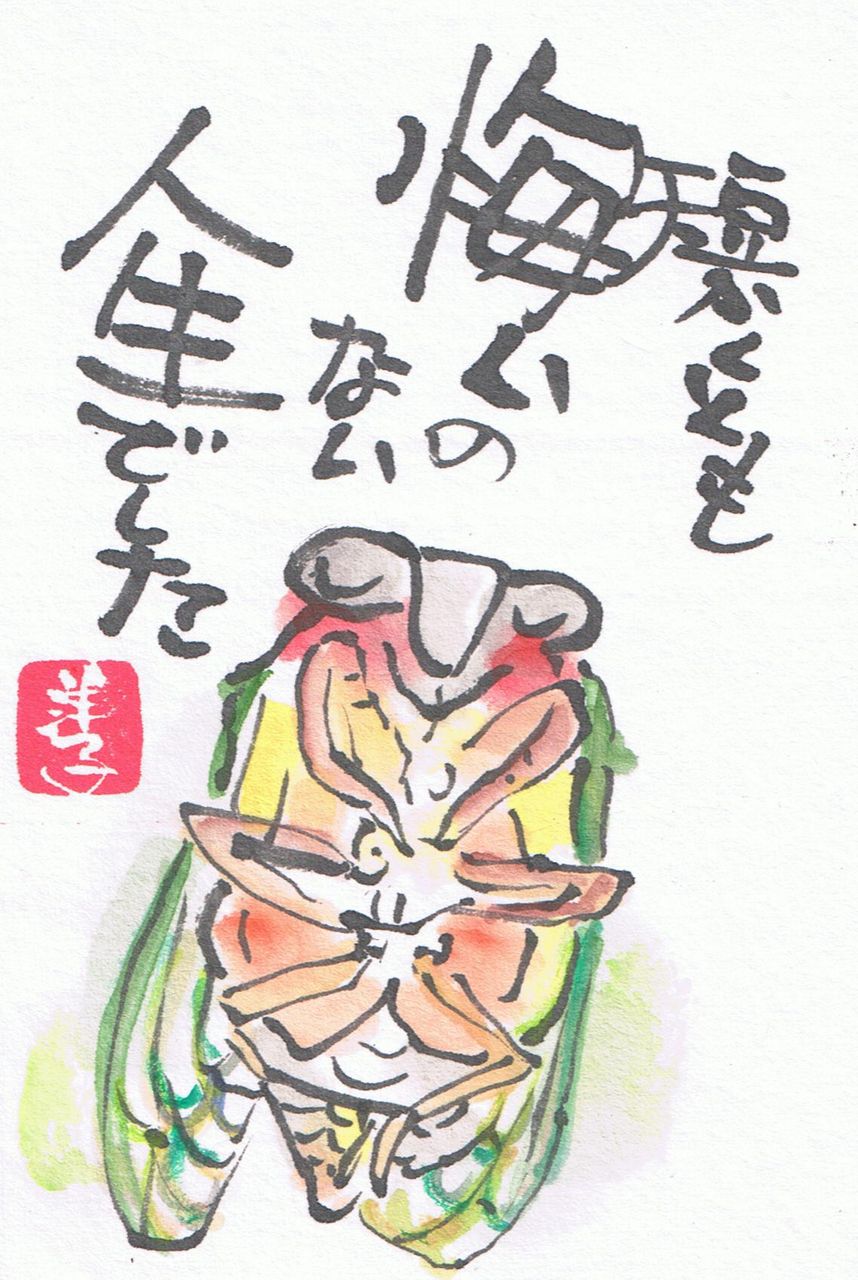 短くとも
悔いの
ない
人生でした
洋子